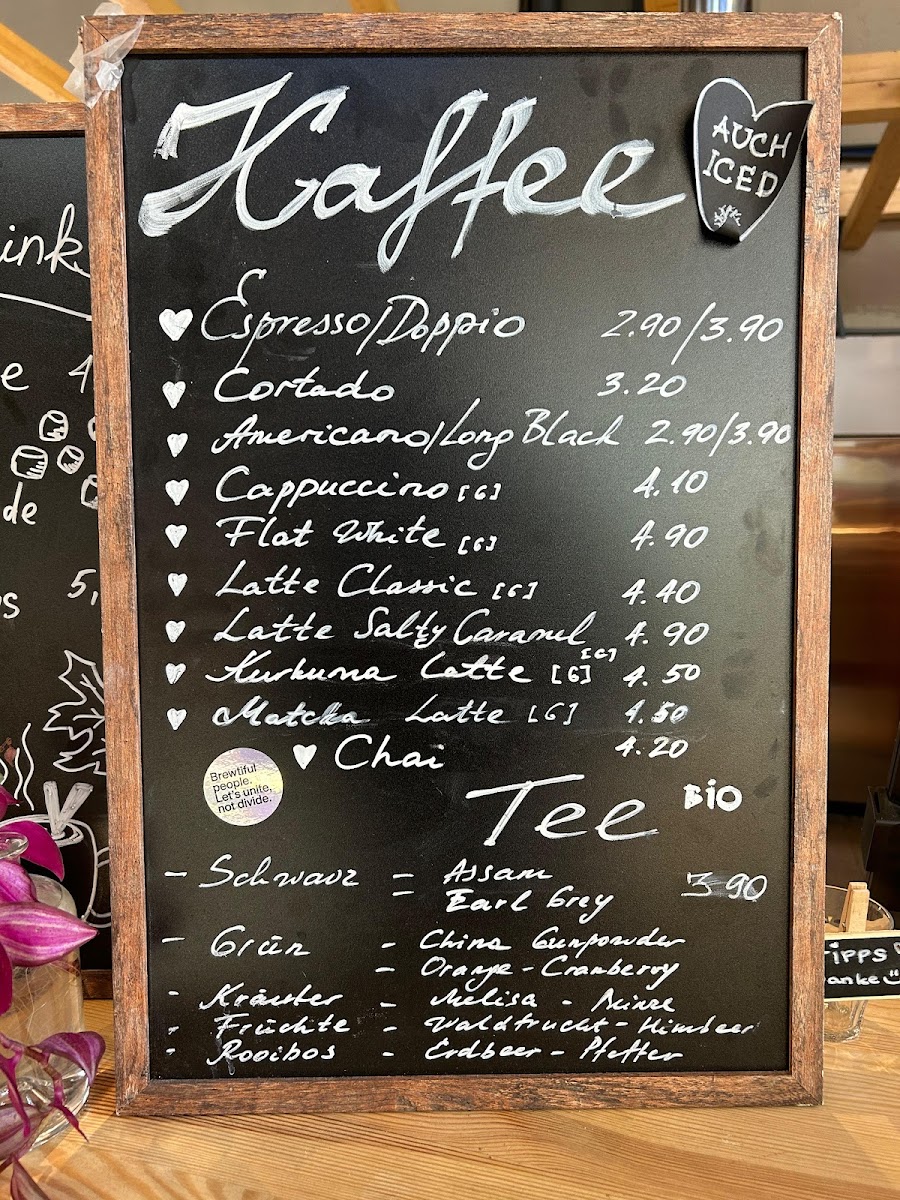 Kaffee
AUCH
ICED
Espresso/Doppio 2.90/3.90
Cortado 3.20
Americano/Long Black 2.90/3.90
Cappuccino [G] 4.10
Flat White [G] 4.90
Latte Classic [G] 4.40
Latte Salty Caramel [G] 4.90
Kurkuma Latte [G] 4.50
Matcha Latte [G] 4.50
Chai 4.20
Brewtiful
people.
Let's unite,
not divide.
Tee BIO
- Schwarz - Assam 3.90
- Earl Grey
- Grün - China Gunpowder
- Orange - Cranberry
- Kräuter - Melisa - Minze
- Früchte - Waldfrucht - Himbeer
- Rooibos - Erdbeer - Pfeffer
ink
e 4
de
s 5,
ipps
anke